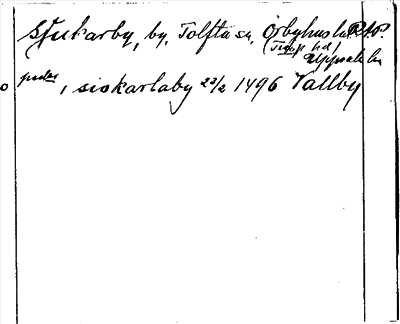 Sjukarby, by, Tolfta sn, Örbyhus hd
Tierp hd,
Uppsala län
, siokarlaby 23/2 1496 Vallby